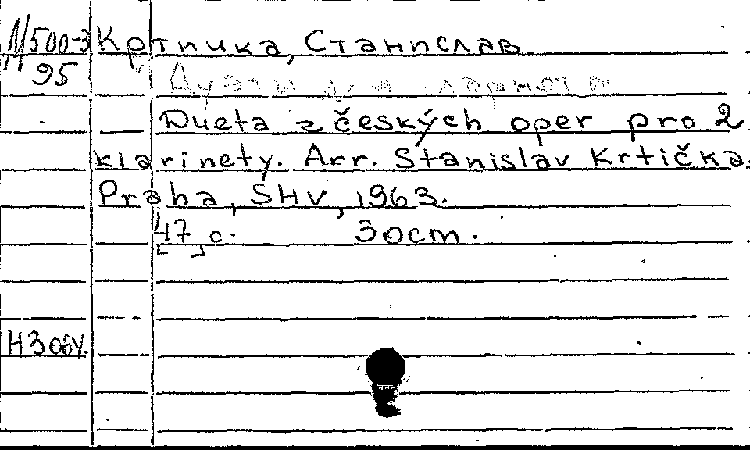 М500-3 Кртичка, Станислав
95
Dueta z českých oper pro 2
klarinety. Arr. Stanislav Krtička.
Praha, SHV, 1963.
[47] с. 30cm.